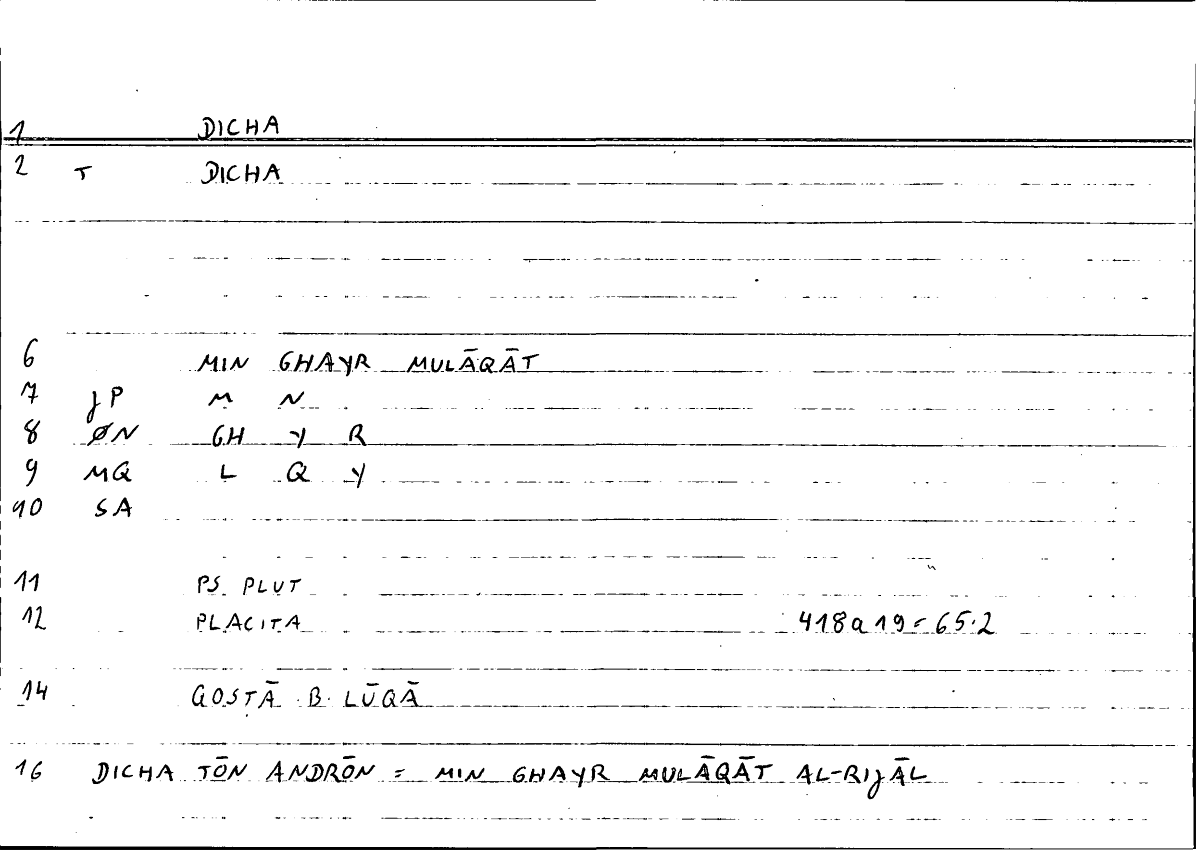 1 DICHA
2 T DICHA
6 MIN GHAYR MULĀQĀT
7 JP M N
8 ØN GH Y R
9 MQ L Q Y
10 SA
11 PS. PLUT
12 PLACITA 418a19 = 65.2
14 QOSṬĀ B. LŪQĀ
16 DICHA TŌN ANDRŌN = MIN GHAYR MULĀQĀT AL-RIJĀL